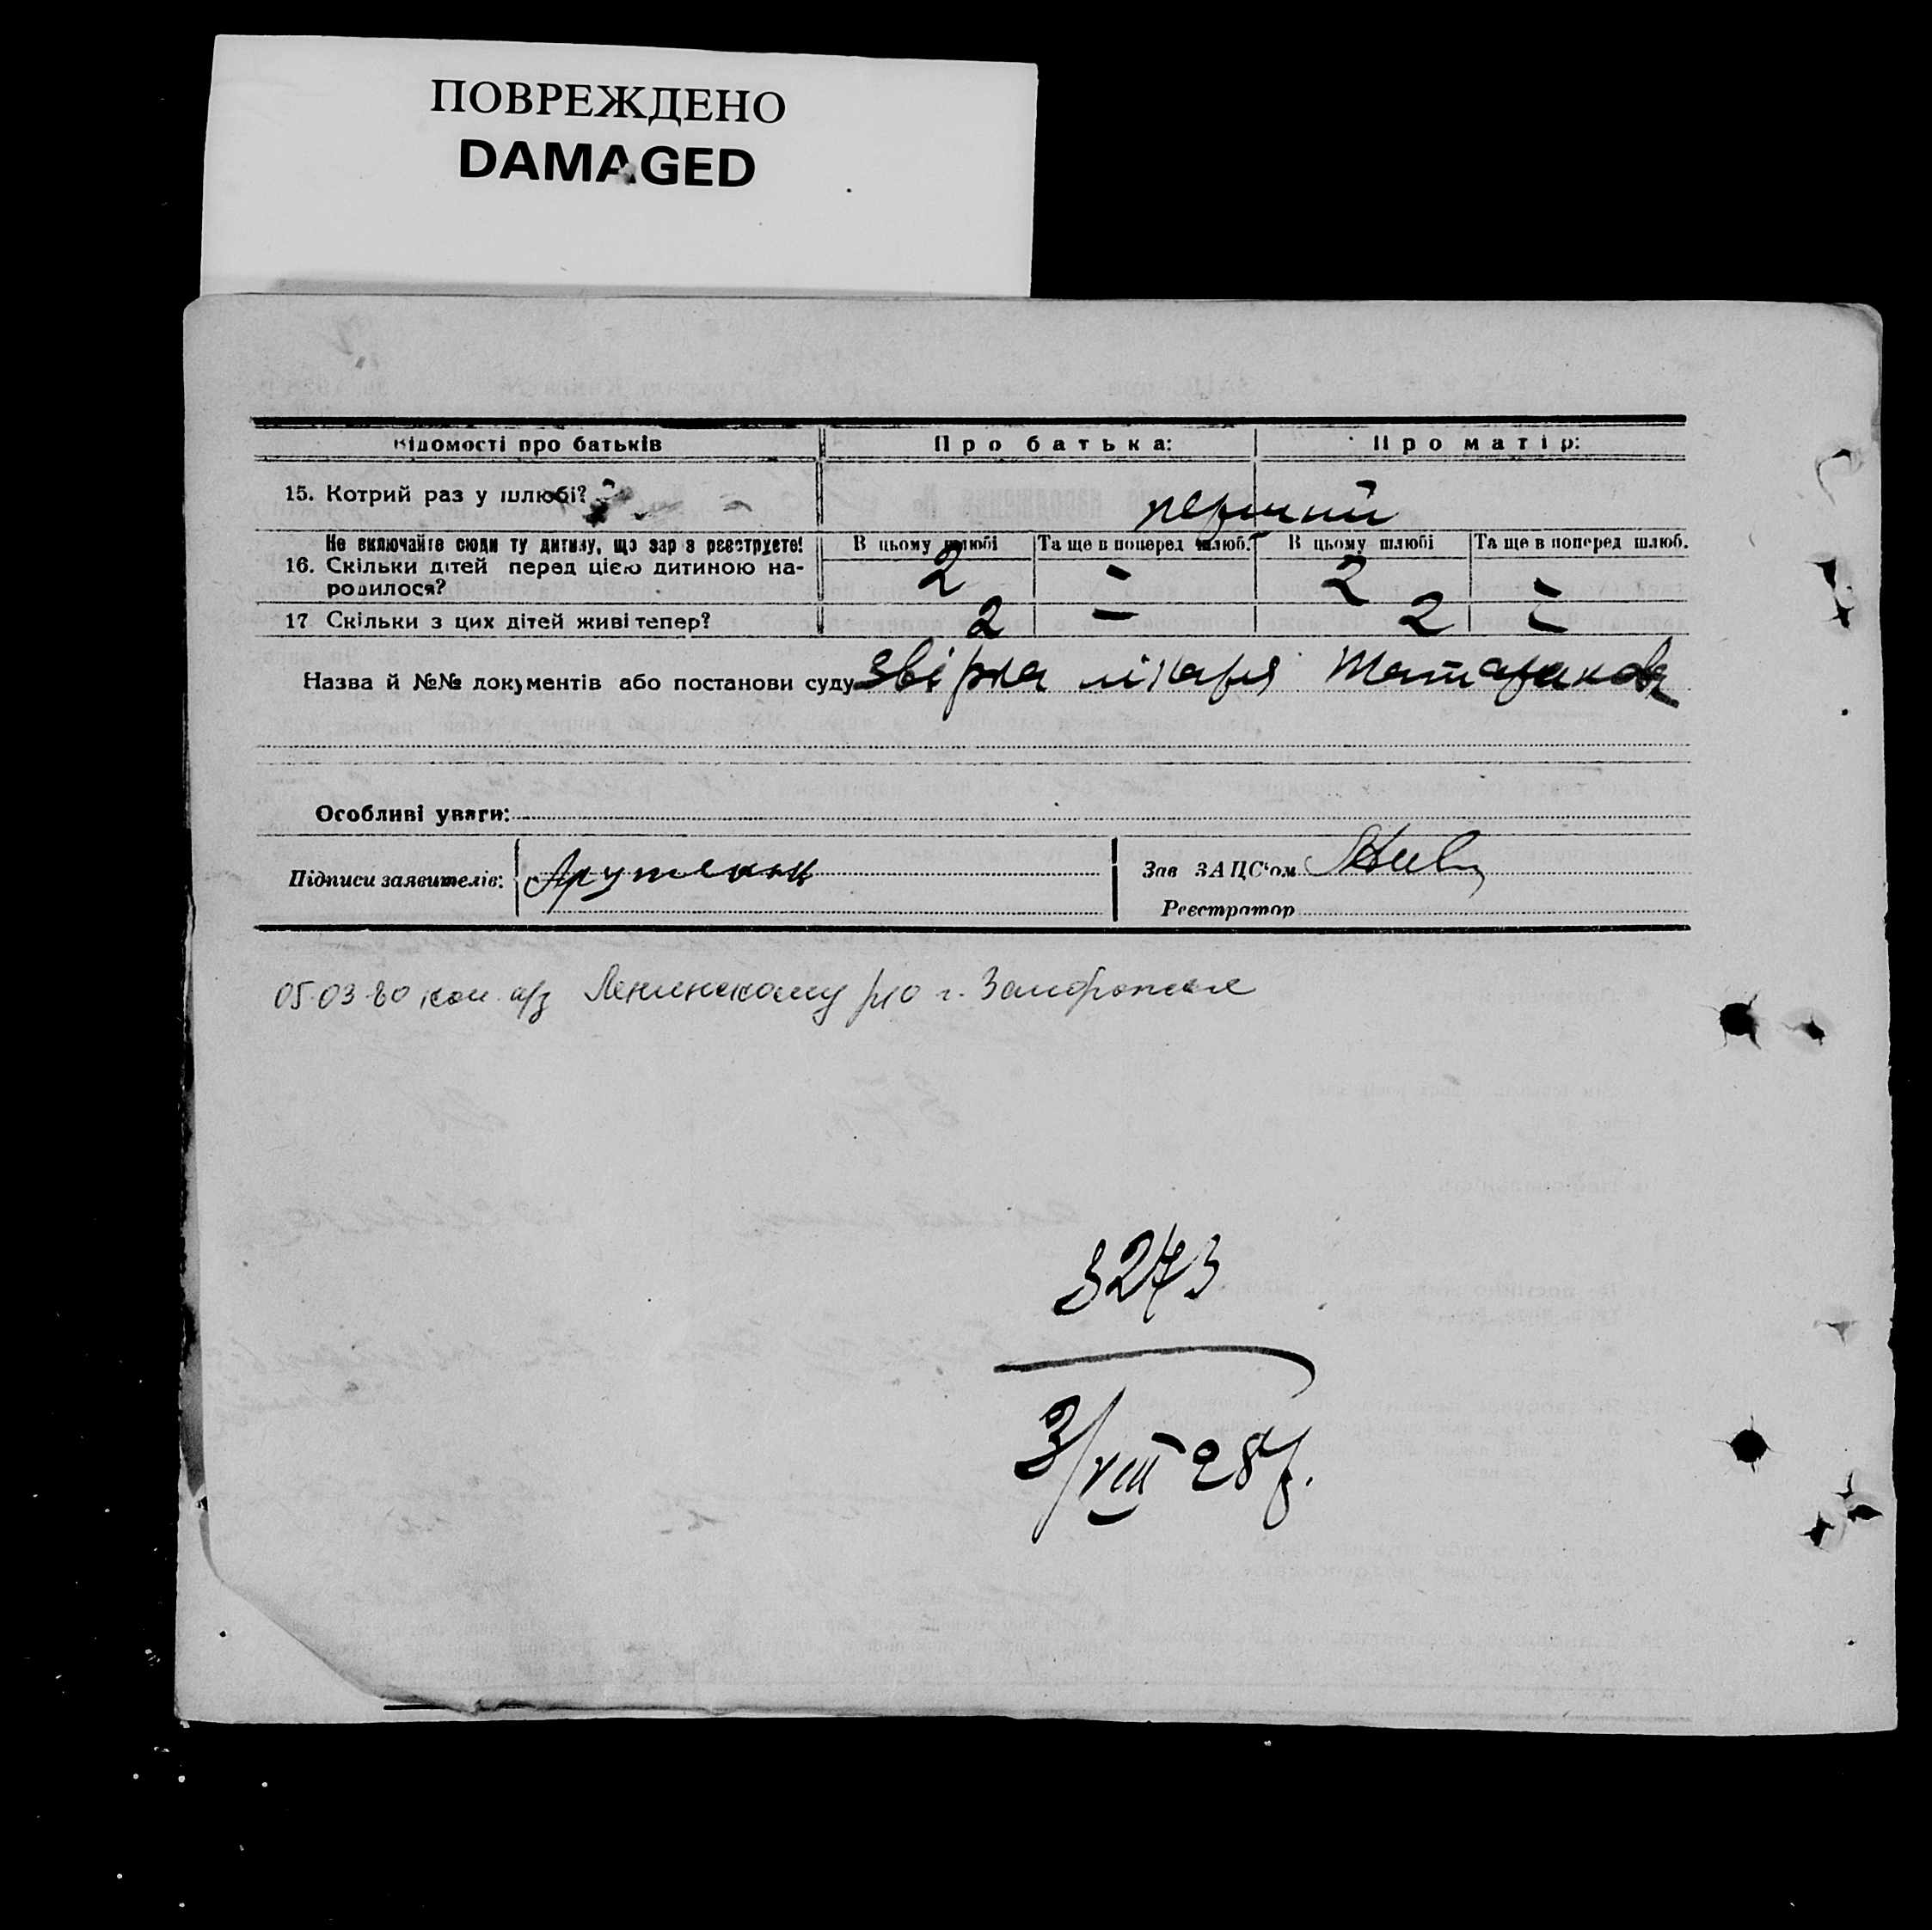 ПОВРЕЖДЕНО
DAMAGED
Відомості про батьків Про батька: Про матір:
15. Котрий раз у шлюбі? перший
Не включайте сюди ту дитину, що зараз реєструєте! В цьому шлюбі Та ще в поперед шлюб. В цьому шлюбі Та ще в поперед шлюб.
16. Скільки дітей перед цією дитиною на-
родилося? 2 – 2 –
17 Скільки з цих дітей живі тепер? 2 – 2 –
Назва й №№ документів або постанови суду звірка лікаря
Особливі уваги:
Підписи заявителів: Арутюнянц Зав ЗАЦС'ом
Реєстратор
05.03.80 коп. а/з Ленинскому р/о г. Запорожья
3273
3/VIII 28 р.